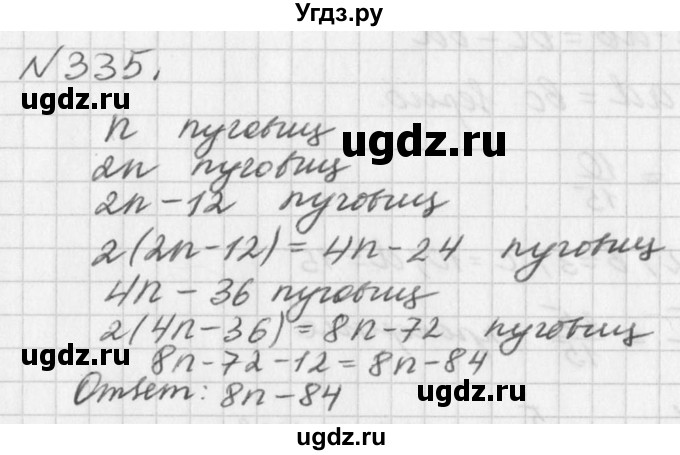 Угдз.ру
№335.
ugdz.ru ugdz.ru
n пуговиц
ugdz.ru
2n пуговиц
2n - 12 пуговиц
ugdz.ru ugdz.ru
2(2n-12) = 4n - 24 пуговиц
4n - 36 пуговиц
2(4n-36) = 8n-72 пуговиц
8n-72-12 = 8n-84
ugdz.ru ugdz.ru ugdz.ru
Ответ: 8n-84
ugdz.ru